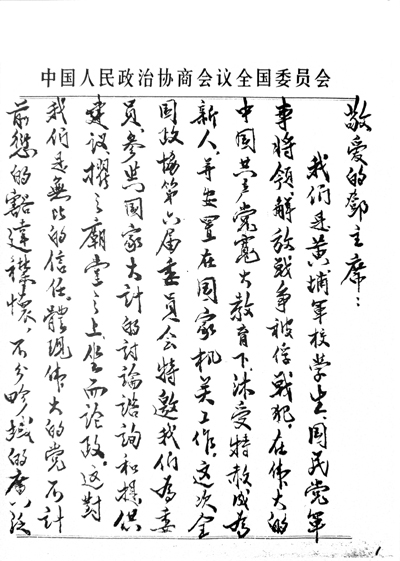 中国人民政治协商会议全国委员会
敬爱的邓主席：
我们是黄埔军校学生、国民党军
事将领、解放战争被俘战犯，在伟大的
中国共产党宽大教育下，沐受特赦成为
新人，并安置在国家机关工作。这次全
国政协第六届委员会特邀我们为委
员，参与国家大计的讨论谘询和提供
建议，擢之廟堂之上，坐而论政。这对
我们是無比的信任。體现伟大的党不计
前愆的豁達襟懷，不分的
1